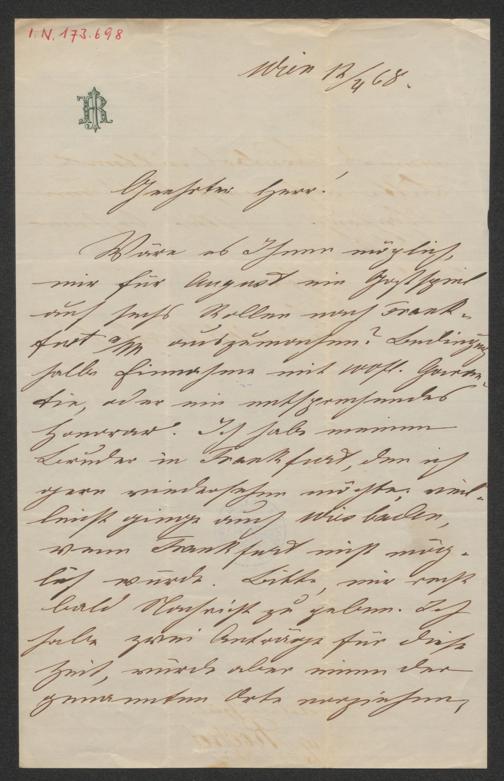 I.N. 173.698
Wien 12/4 68.
Geehrter Herr!
Wäre es Ihnen möglich,
mir für August ein Gastspiel
auf sechs Rollen nach Frank-
furt a/M auszumachen? Bedingung
halbe Einnahme mit Garan-
tie, oder ein entsprechendes
Honorar. Ich habe meinen
Bruder in Frankfurt, den ich
gern wiedersehen möchte; viel-
leicht ginge auch Wiesbaden,
wenn Frankfurt nicht mög-
lich würde. Bitte, mir recht
bald Nachricht zu geben. Ich
habe zwei Anträge für diese
Zeit, würde aber einen der
genannten Orte vorziehen,